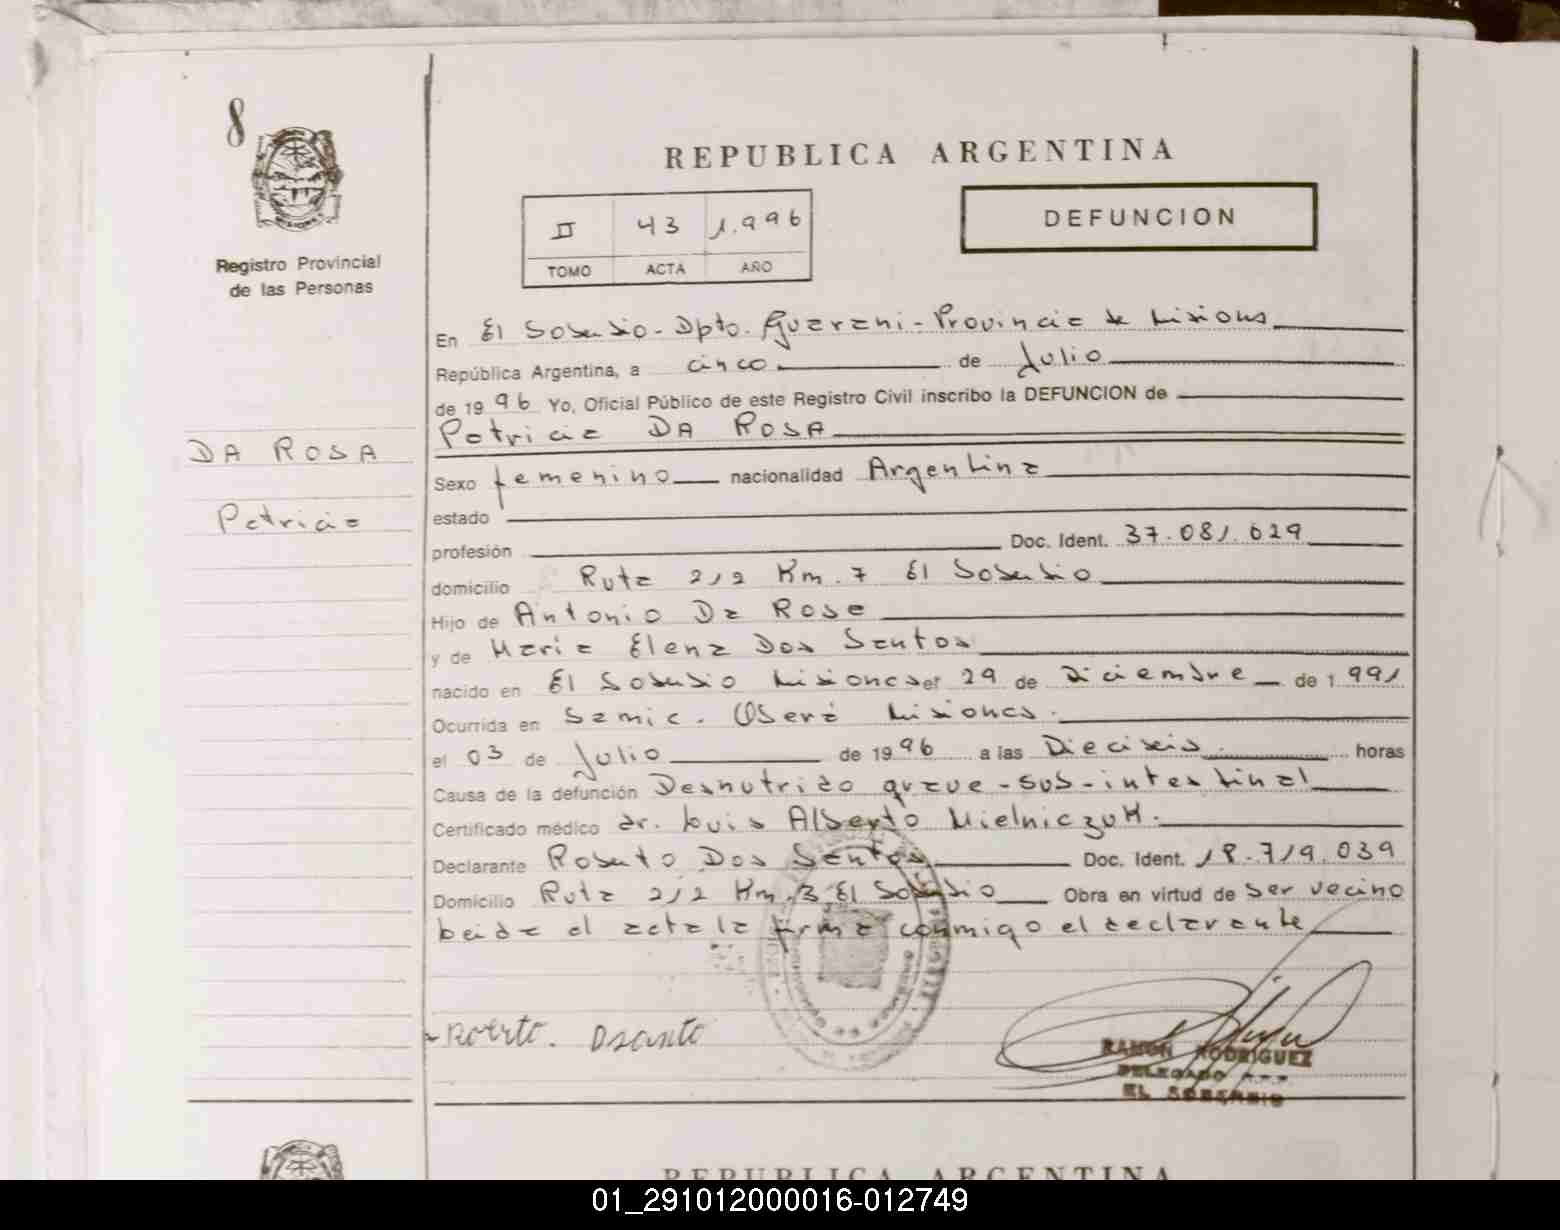 8
Registro Provincial
de las Personas
DA ROSA
Patricia
REPUBLICA ARGENTINA
II 43 1.996
TOMO ACTA AÑO
DEFUNCION
En El Soberbio - Dpto. Guarani - Provincia de Misiones
República Argentina, a cinco de Julio
de 1996 Yo, Oficial Público de este Registro Civil inscribo la DEFUNCION de
Patricia DA ROSA
Sexo femenino nacionalidad Argentina
estado
profesión Doc. Ident. 37.081.029
domicilio Ruta 212 Km. 7 El Soberbio
Hijo de Antonio Da Rosa
y de Maria Elena Dos Santos
nacido en El Soberbio Misiones el 29 de Diciembre de 1991
Ocurrida en Samic. Oberá Misiones.
el 03 de Julio de 1996 a las Dieciseis horas
Causa de la defunción Desnutrido grave - sub-intestinal
Certificado médico dr. Luis Alberto Mielniczuk.
Declarante Roberto Dos Santos Doc. Ident. 18.719.039
Domicilio Ruta 212 Km. 3 El Soberbio Obra en virtud de ser vecino
Leida el acta la firma conmigo el declarante
RAMON RODRIGUEZ
DELEGADO
EL SOBERBIO
REPUBLICA ARGENTINA
01_291012000016-012749